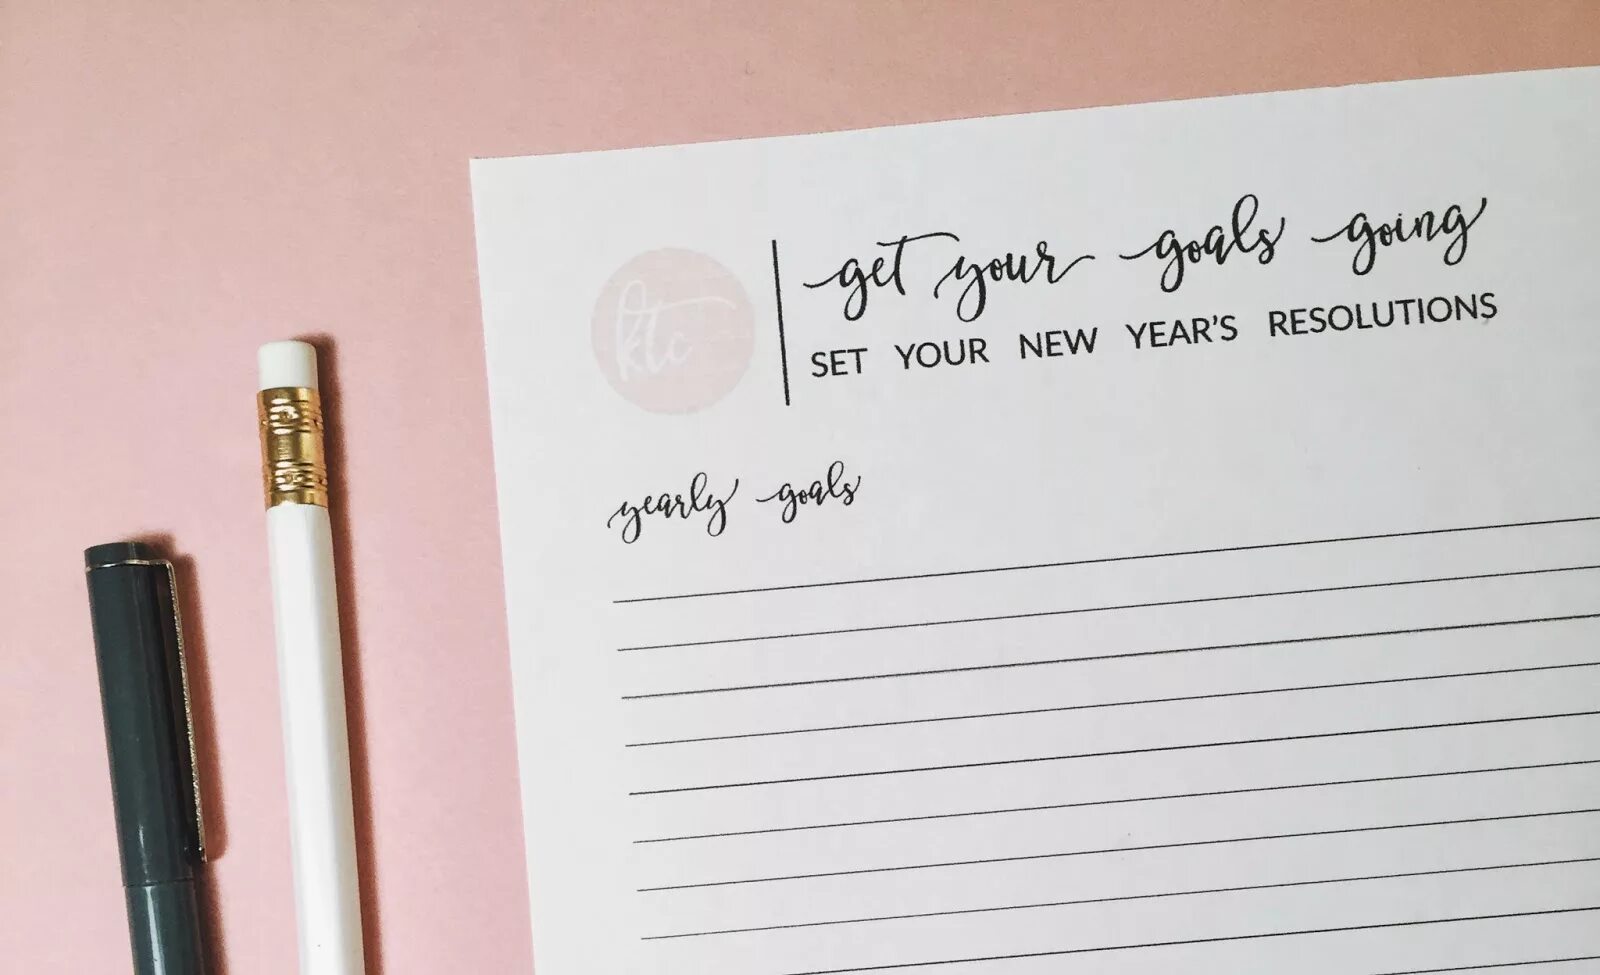 get your goals going
SET YOUR NEW YEAR'S RESOLUTIONS
ktc
yearly goals